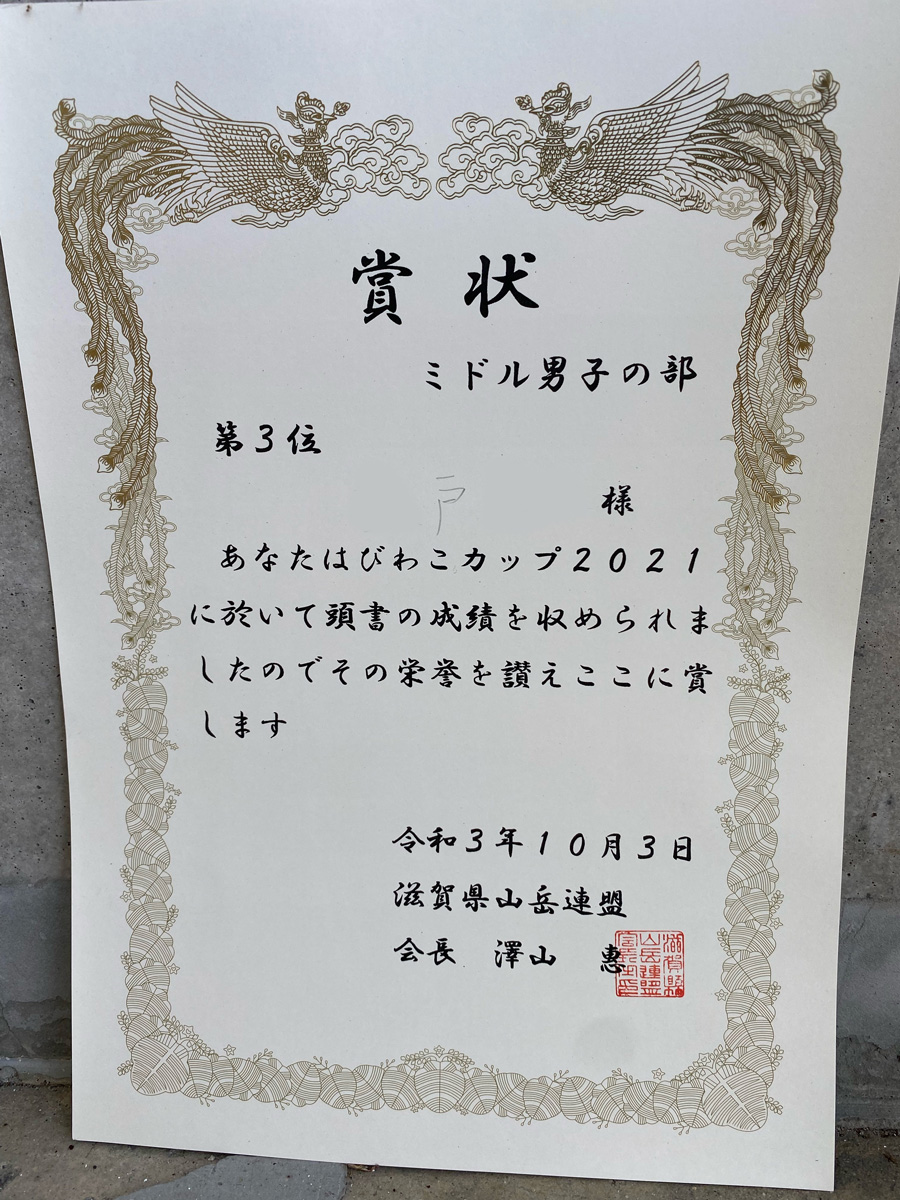 賞状
ミドル男子の部
第3位
戸 様
あなたはびわこカップ2021
に於いて頭書の成績を収められま
したのでその栄誉を讃えここに賞
します
令和3年10月3日
滋賀県山岳連盟
会長 澤山 惠